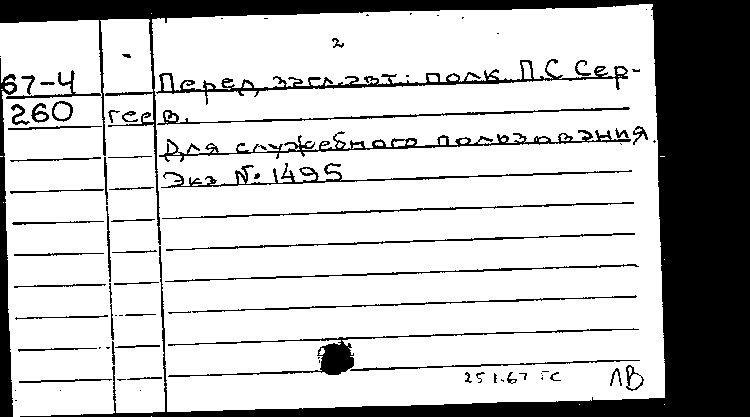 2
67-4 Перед загл. авт.: полк. П.С Сер-
260 геев.
Для служебного пользования.
Экз № 1495
25 1.67 ГС ЛВ